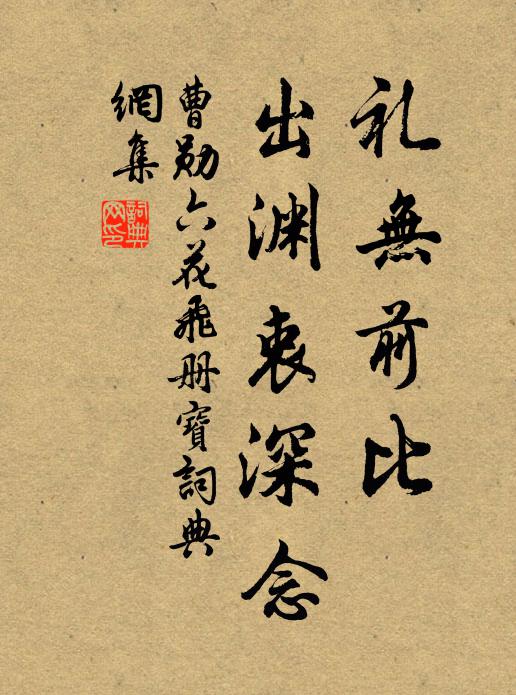 礼無前比
出渊衷深念
曹勛六花飛册寶詞典
網集
詞典網印